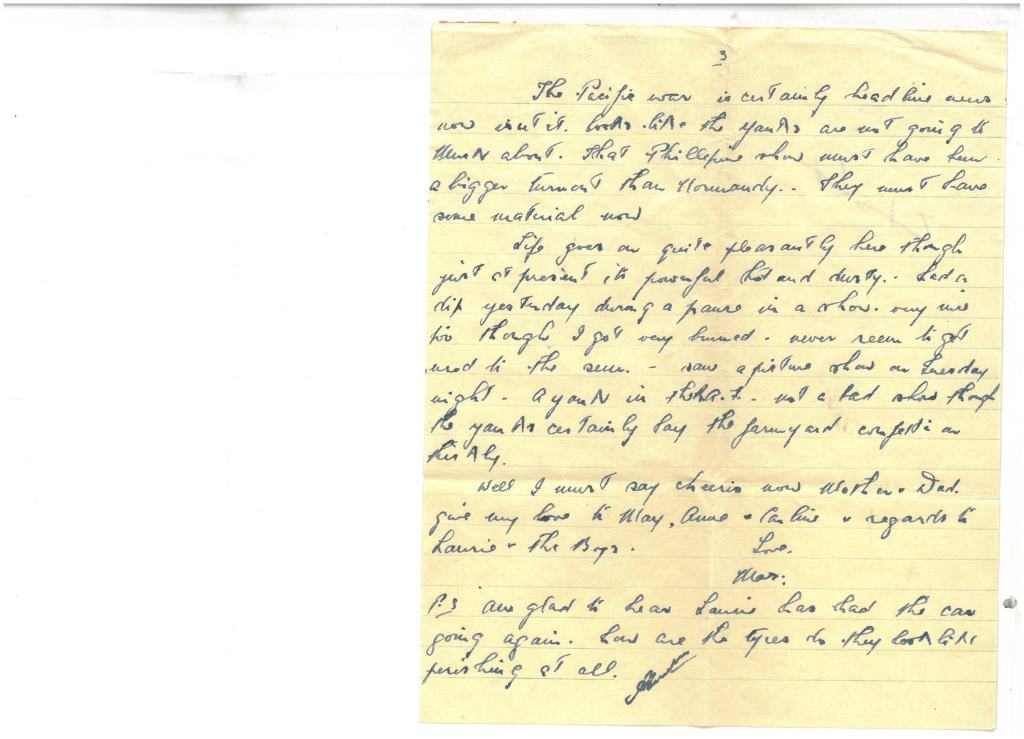 3
The Pacific war is certainly headline news
now isn't it. looks like the yanks are not going to
muck about. That Phillipine show must have been
a bigger turnout than Normandy.. They must have
some material now
Life goes on quite pleasantly here though
just at present its powerful hot and dusty. Had a
dip yesterday during a pause in a show. very nice
too though I got very burned. never seem to get
used to the sun. - saw a picture show on Tuesday
night. A yank in the R.A.F. - not a bad show though
the yanks certainly lay the farmyard confetti on
thickly.
Well I must say cheerio now Mother & Dad.
give my love to May, Anne & & regards to
Laurie & the Boys.
Love.
P.S am glad to hear Laurie has had the car
going again. how are the tyres do they look like
perishing at all.